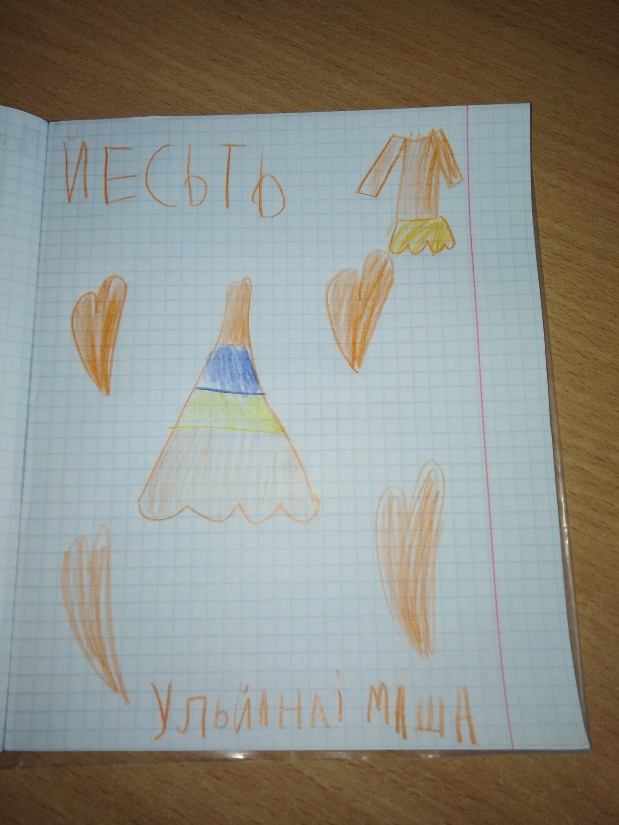 ЙЕСЬТЬ
УЛЬЙАНАІ МАША